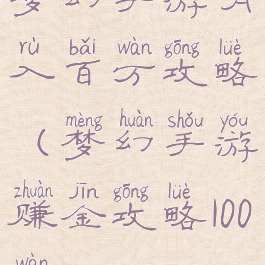 rù bǎi wàn gōng lüè
入百万攻略
mèng huàn shǒu yóu
（梦幻手游
zhuàn jīn gōng lüè
赚金攻略100
wàn